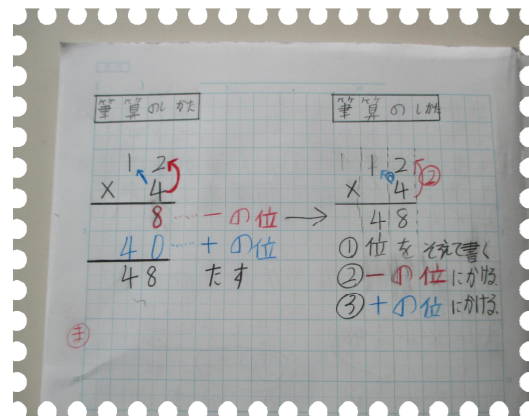 筆算のしかた
1 2
× 4
8 ……一の位
4 0 ……十の位
4 8 たす
→
筆算のしかた
1 2 ②
× 4
4 8
①位をそろえて書く
②一の位にかける.
③十の位にかける.
ま